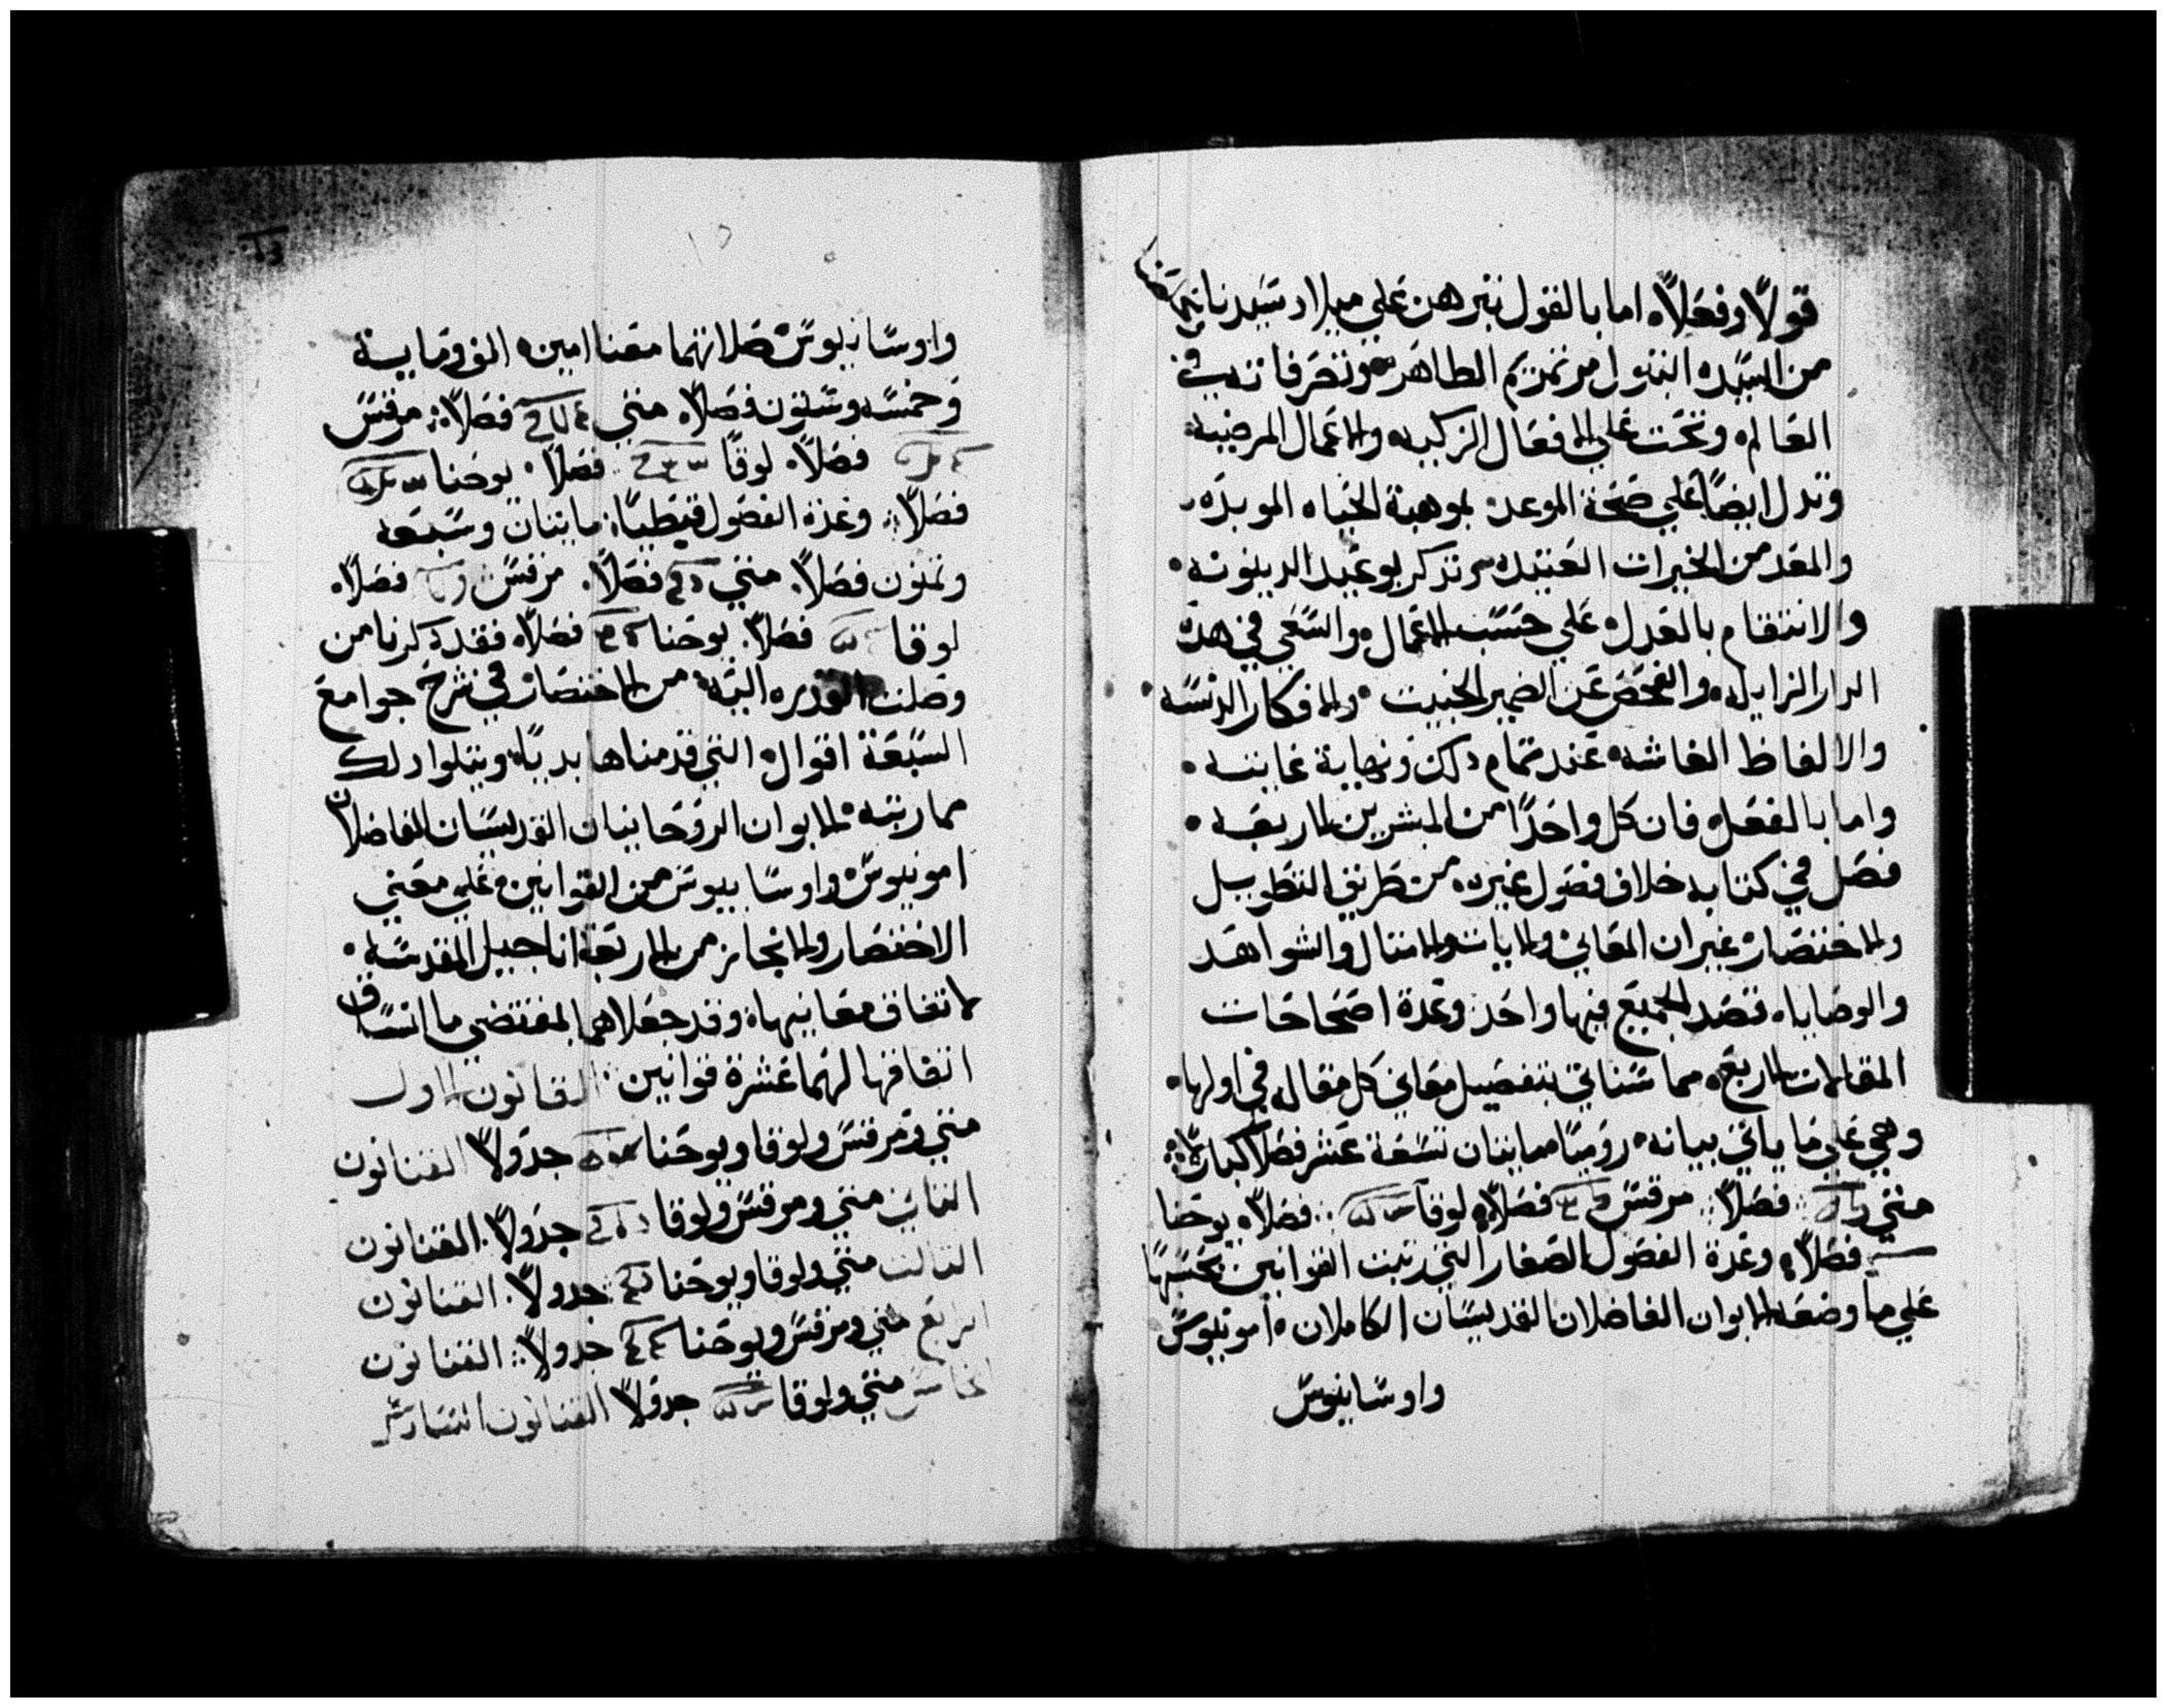 قولاً وفعلاً ه اما بالقول تبرهن علي ميلاد سيدنا
من السيده البتول مرتمريم الطاهره وتصرفاته في
العالم ه وتحت علي الافعال الزكيه ه والاعمال المرضيه
وتدل ايضاً علي صحة الموعد بموهبة الحياه الموبده
والمقد من الخيرات العتيده تذكر بوعيد الدينونه
والانتقام بالعدل علي حسب الاعمال ه والسعي في هده
الدار الزايله ه والفحص عن الضمير الخبيت ه والافكار الدنسه
والالفاظ الفاشه ه عند تمام دلك ونهاية غايته ه
واما بالفعل ه فان كل واحداً من المبشرين الاربعه ه
فصل في كتابه خلاف فصول غيره ه من طريق التطويل
والاختصار ه غير ان المعاني والايات والامتال والشواهد
والوصاياه قصد الجميع فيها واحد وعدة اصحاحات
المقالات الاربعه مما سناتي بتفصيل معاني كل مقاله في اولها ه
وهي علي ما ياتي بيانه ه روميًا مايتان تسعة عشر فصلاً كبارًا
متي فصلاً مرقس فصلاً لوقا فصلاً يوحنا
فصلاً وعدة الفصول الصغار التي رتبت القوانين بحسبها
علي ما وضعه الابوان الفاضلان القديسان الكاملان ه امونيوس
واوسابيوس
واوسابيوس صلاتهما معنا امين ه الف ومايه
وخمسه وستون فصلاً ه متي فصلاً مرقس
فصلاً ه لوقا فصلاً ه يوحنا
فصلاً وعدة الفصول قبطيًا مايتان وسبعه
وتمنون فصلاً. متي فصلاً. مرقس فصلاً.
لوقا فصلاً. يوحنا فصلاً ه فقد دكرنا من
وصلت القدره اليه ه من الاختصار في شرح جوامع
السبعة اقوال ه التي قدمناها بديًا ه ويتلوا دلك
مما رتبه ه الابوان الروحانيان القديسان الفاضلان
امونيوس ه واوسابيوس من القوانين ه علي معني
الاختصار والايجاز من الاربعة اناجيل المقدسه ه
لاتفاق معانيها ه وقد جعلاها بمقتضي ما اتساق
اتفاقها لهما عشرة قوانين القانون الاول
متي ومرقس ولوقا ويوحنا جدولاً القانون
التاني متي ومرقس ولوقا جدولاً. القانون
التالت متي ولوقا ويوحنا جدولاً. القانون
الرابع متي ومرقس ويوحنا جدولاً القانون
الخامس متي ولوقا جدولاً القانون السادس